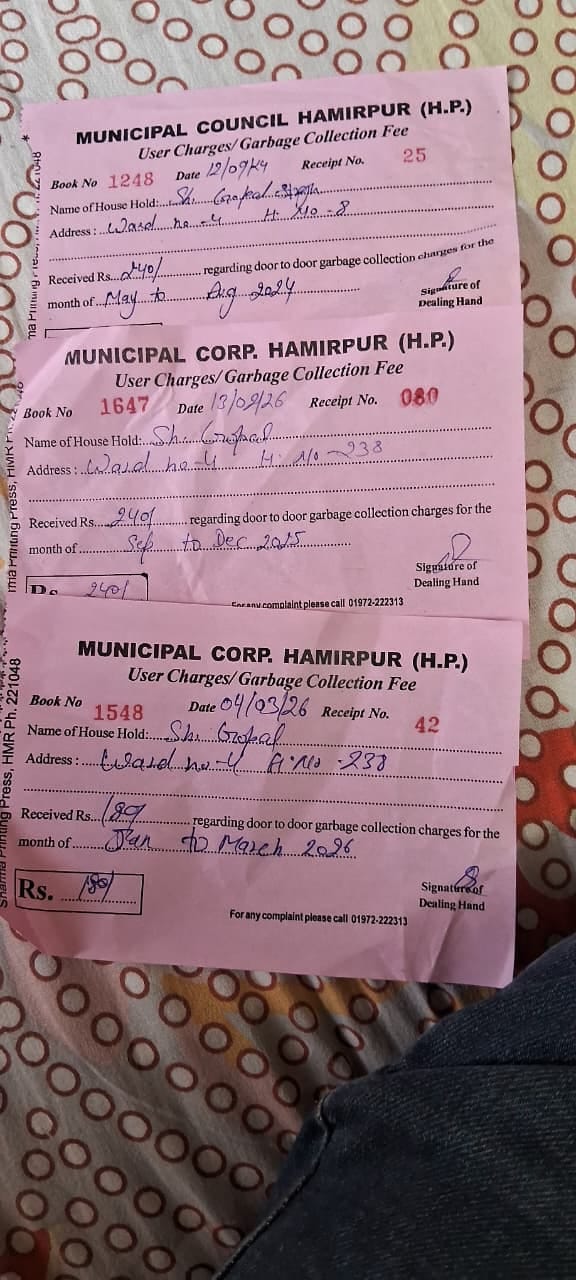 MUNICIPAL COUNCIL HAMIRPUR (H.P.)
User Charges/ Garbage Collection Fee
Book No 1248 Date 12/09/24 Receipt No. 25
Name of House Hold: Sh. Gopal Singh
Address : Ward no-4 H. No -8
Received Rs. 240/ regarding door to door garbage collection charges for the
month of May to Aug 2024
Signature of
Dealing Hand
MUNICIPAL CORP. HAMIRPUR (H.P.)
User Charges/ Garbage Collection Fee
Book No 1647 Date 13/02/26 Receipt No. 080
Name of House Hold: Sh. Gopal
Address : Ward no-4 H. No -238
Received Rs. 240/ regarding door to door garbage collection charges for the
month of Sep to Dec 2025
Signature of
Dealing Hand
Rs. 240/
For any complaint please call 01972-222313
MUNICIPAL CORP. HAMIRPUR (H.P.)
User Charges/ Garbage Collection Fee
Book No 1548 Date 04/03/26 Receipt No. 42
Name of House Hold: Sh. Gopal
Address : Ward no-4 H. No -238
Received Rs. 180/ regarding door to door garbage collection charges for the
month of Jan to March 2026
Rs. 180/
Signature of
Dealing Hand
For any complaint please call 01972-222313
Sharma Printing Press, HMR Ph. 221048